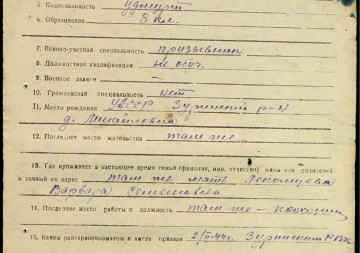 5. Национальность удмурт
6. Образование 5 кл.
7. Военно-учетная специальность призывник
8. Должностная квалификация не обуч.
9. Военное звание –
10. Гражданская специальность нет
11. Место рождения УАССР Зуринский р-н
д. Михайловка
12. Последнее место жительства там же
13. Где проживает в настоящее время семья (фамилия, имя, отчество) жены или родителей
и точный их адрес там же мать
Варвара Семеновна
14. Последнее место работы и должность там же – колхозник
15. Каким райгорвоенкоматом и когда призван Зуринским РВК